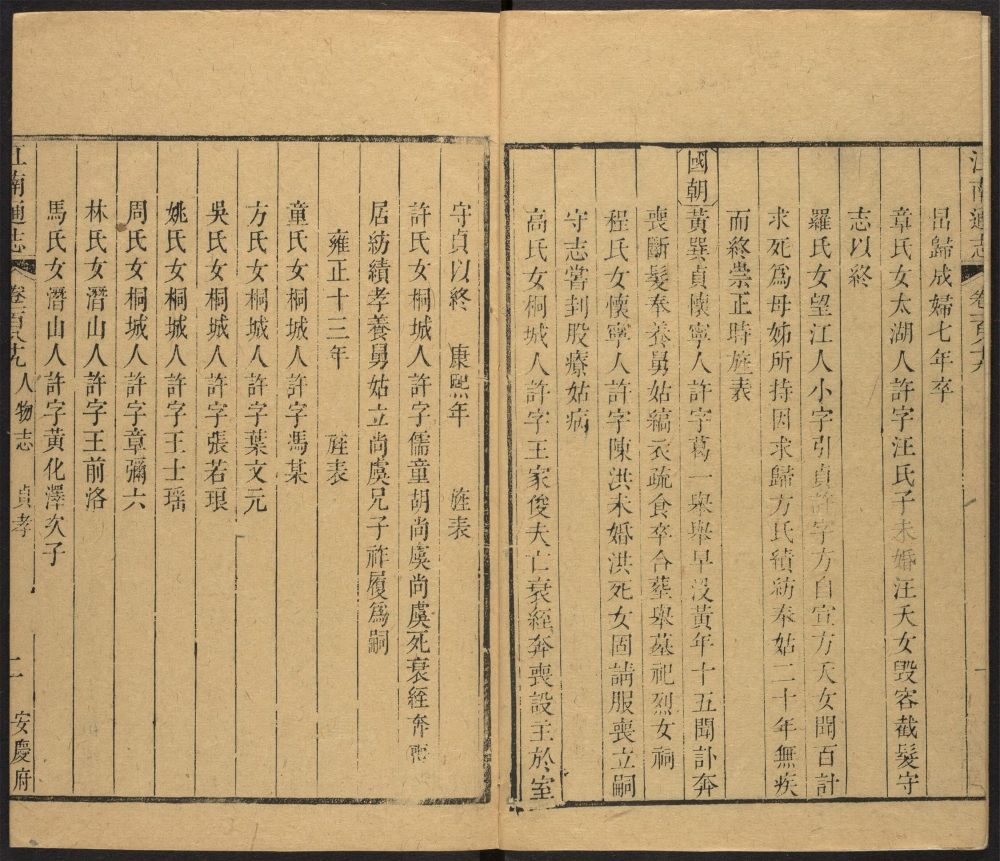 江南通志
卷一百八十九
一
甾歸成婦七年卒
章氏女太湖人許字汪氏子未婚汪夭女毁容截髮守
志以終
羅氏女望江人小字引貞許字方自宣方夭女聞百計
求死爲母姊所持因求歸方氏績紡奉姑二十年無疾
而終崇正時旌表
國朝黃巽貞懷寧人許字葛一舉舉早没黃年十五聞訃奔
喪斷髮奉養舅姑縞衣疏食卒合葬舉墓祀烈女祠
程氏女懷寧人許字陳洪未婚洪死女固請服喪立嗣
守志嘗刲股療姑病
高氏女桐城人許字王家俊夫亡衰絰奔喪設主於室
守貞以終 康熙年 旌表
許氏女桐城人許字儒童胡尚虞尚虞死衰絰奔喪
居紡績孝養舅姑立尚虞兄子祚履爲嗣
雍正十三年 旌表
童氏女桐城人許字馮某
方氏女桐城人許字葉文元
吳氏女桐城人許字張若琅
姚氏女桐城人許字王士瑶
周氏女桐城人許字章彌六
林氏女潛山人許字王前洛
馬氏女潛山人許字黃化澤次子
江南通志 卷一百八十九 人物志 貞孝 二 安慶府